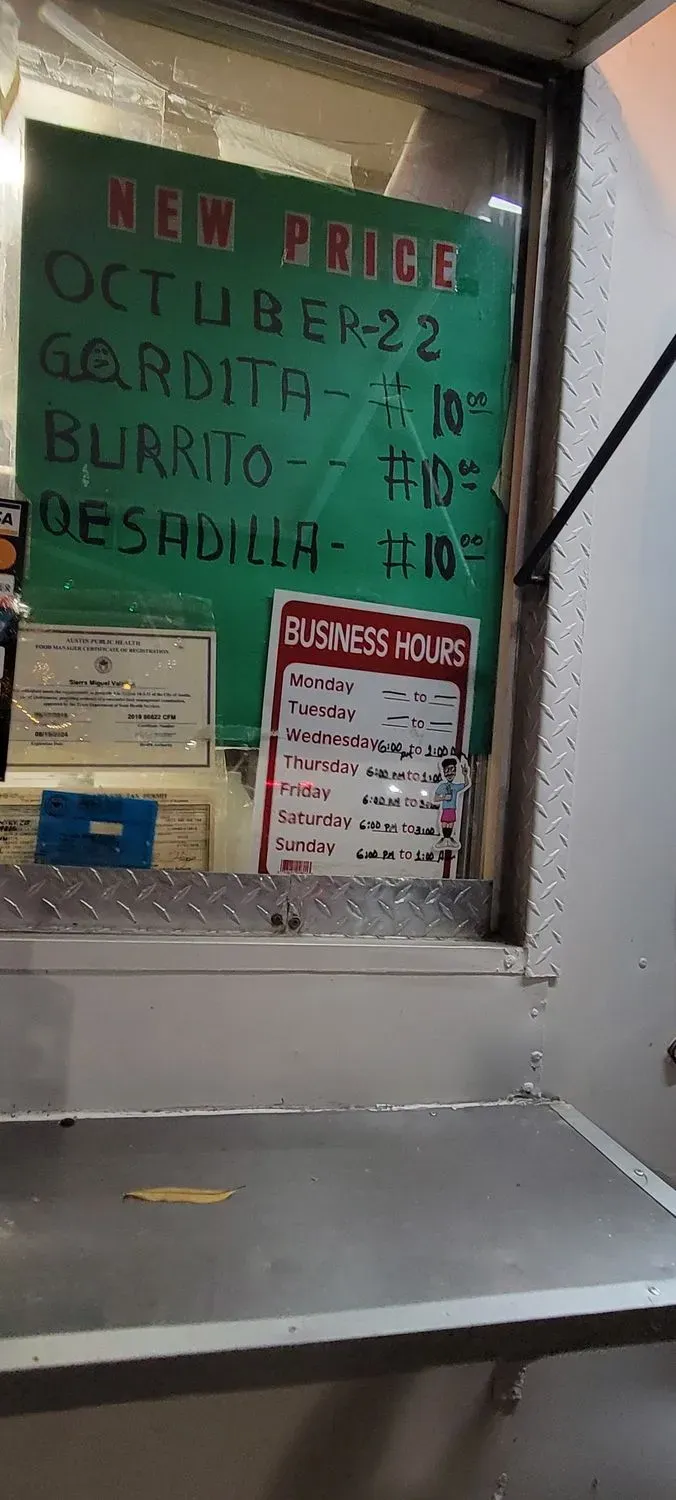 NEW PRICE
OCTUBER-22
GORDITA- # 10 00
BURRITO-- #10 00
QESADILLA- #10 00
AUSTIN PUBLIC HEALTH
FOOD MANAGER CERTIFICATE OF REGISTRATION
Sierra Miguel
2019 CFM
Certificate Number
08/19/2024
Expiration Date
Health Authority
BUSINESS HOURS
Monday — to —
Tuesday — to —
Wednesday 6:00 PM to 1:00 A
Thursday 6:00 PM to 1:00
Friday 6:00 PM to
Saturday 6:00 PM to 3:00
Sunday 6:00 PM to 1:00 AM